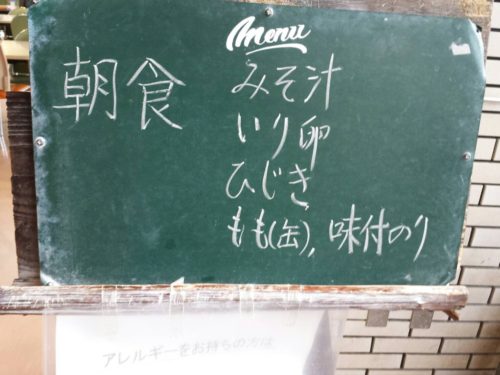 Menu
朝食
みそ汁
いり卵
ひじき
もも(缶), 味付のり
アレルギーをお持ちの方は